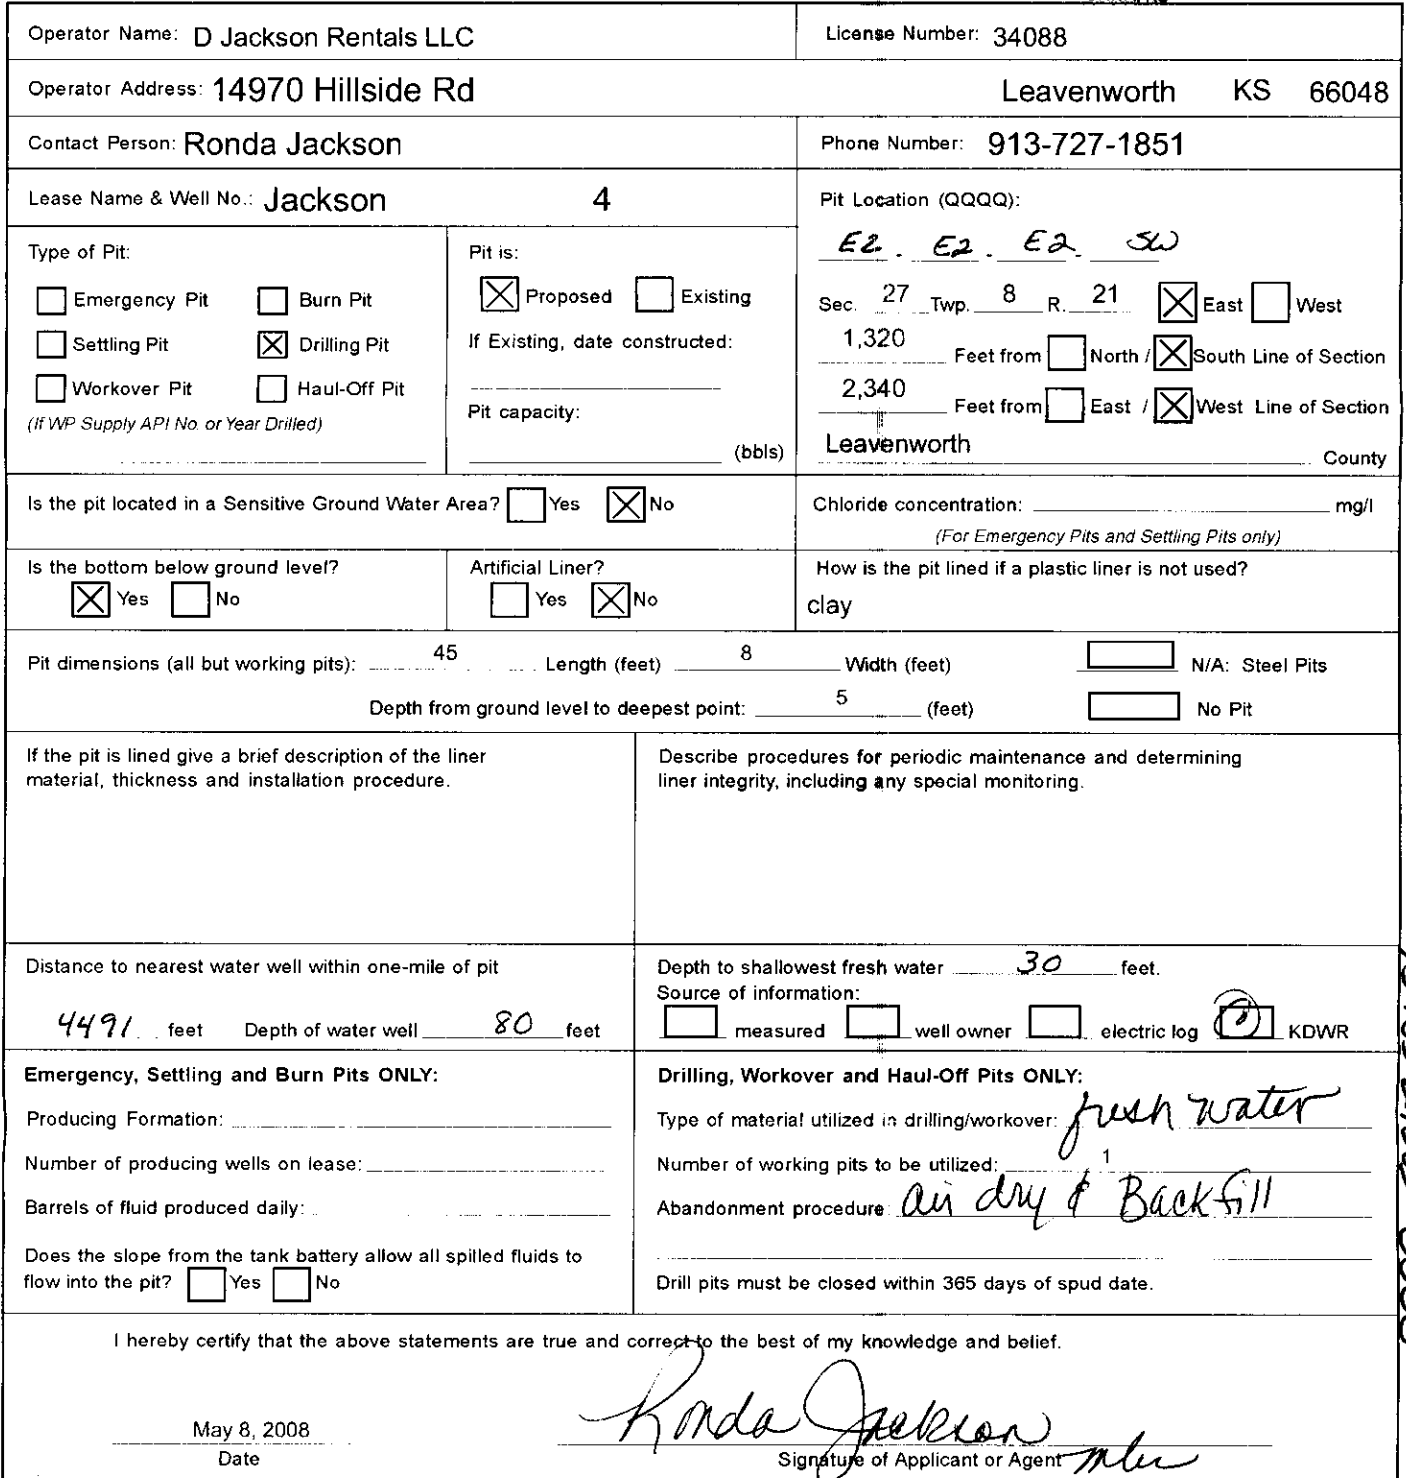 Operator Name: D Jackson Rentals LLC
License Number: 34088
Operator Address: 14970 Hillside Rd Leavenworth KS 66048
Contact Person: Ronda Jackson
Phone Number: 913-727-1851
Lease Name & Well No.: Jackson 4
Pit Location (QQQQ):
E2 . E2 . E2 . SW
Type of Pit:
Emergency Pit Burn Pit
Settling Pit Drilling Pit
Workover Pit Haul-Off Pit
(If WP Supply API No. or Year Drilled)
Pit is:
Proposed Existing
If Existing, date constructed:
Pit capacity:
(bbls)
Sec. 27 Twp. 8 R. 21 East West
1,320 Feet from North / South Line of Section
2,340 Feet from East / West Line of Section
Leavenworth County
Is the pit located in a Sensitive Ground Water Area? Yes No
Chloride concentration: mg/l
(For Emergency Pits and Settling Pits only)
Is the bottom below ground level?
Yes No
Artificial Liner?
Yes No
How is the pit lined if a plastic liner is not used?
clay
Pit dimensions (all but working pits): 45 Length (feet) 8 Width (feet) N/A: Steel Pits
Depth from ground level to deepest point: 5 (feet) No Pit
If the pit is lined give a brief description of the liner
material, thickness and installation procedure.
Describe procedures for periodic maintenance and determining
liner integrity, including any special monitoring.
Distance to nearest water well within one-mile of pit
4491 feet Depth of water well 80 feet
Depth to shallowest fresh water 30 feet.
Source of information:
measured well owner electric log KDWR
Emergency, Settling and Burn Pits ONLY:
Producing Formation:
Number of producing wells on lease:
Barrels of fluid produced daily:
Does the slope from the tank battery allow all spilled fluids to
flow into the pit? Yes No
Drilling, Workover and Haul-Off Pits ONLY:
Type of material utilized in drilling/workover: fresh water
Number of working pits to be utilized: 1
Abandonment procedure: air dry & Backfill
Drill pits must be closed within 365 days of spud date.
I hereby certify that the above statements are true and correct to the best of my knowledge and belief.
May 8, 2008
Date
Ronda Jackson
Signature of Applicant or Agent